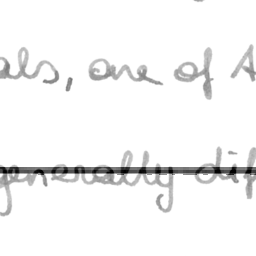 als, one of A
generally dif